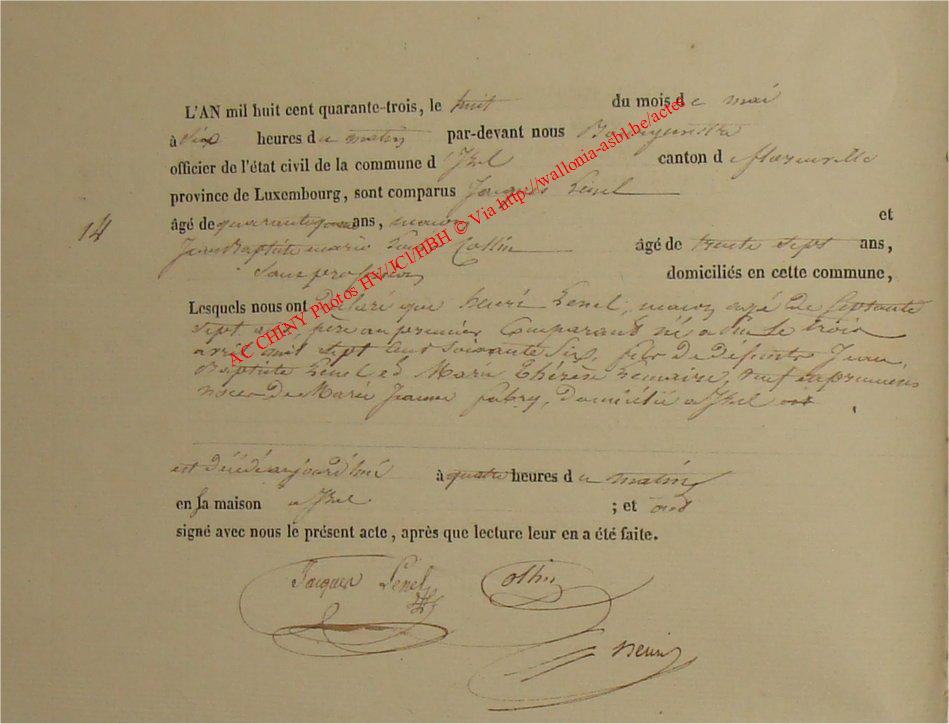 L'AN mil huit cent quarante-trois, le huit du mois de mai
à dix heures du matin par-devant nous Bourgmestre
officier de l'état civil de la commune d'Izel canton de florenville
province de Luxembourg, sont comparus Jacques Lenel
14
âgé de quarante ans, maçon et
Jean Baptiste marie Collin âgé de trente sept ans,
Sans profession domiciliés en cette commune,
Lesquels nous ont déclaré que henri Lenel, maçon agé de septante
sept ans, père au premier Comparant né a le trois
mil sept cent soixante six, fils de défunts Jean
Baptiste Lenel et Marie Thérèse Lemaire, veuf en premieres
noces de Marie Jeanne fabry, domicilié a Izel
est décédé aujourd'hui à quatre heures du matin
en sa maison a Izel ; et ont
signé avec nous le présent acte, après que lecture leur en a été faite.
Jacques Lenel Collin
AC CHINY Photos HV/JCI/HBH © Via http://wallonia-asbl.be/actes